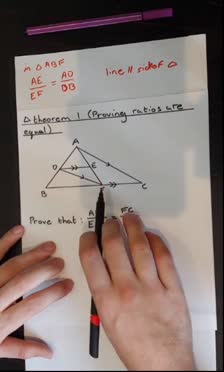 in △ABF
AE/EF = AD/DB line // side of △
△ theorem 1 (Proving ratios are equal)
A
D E
B C
Prove that : A FC
E